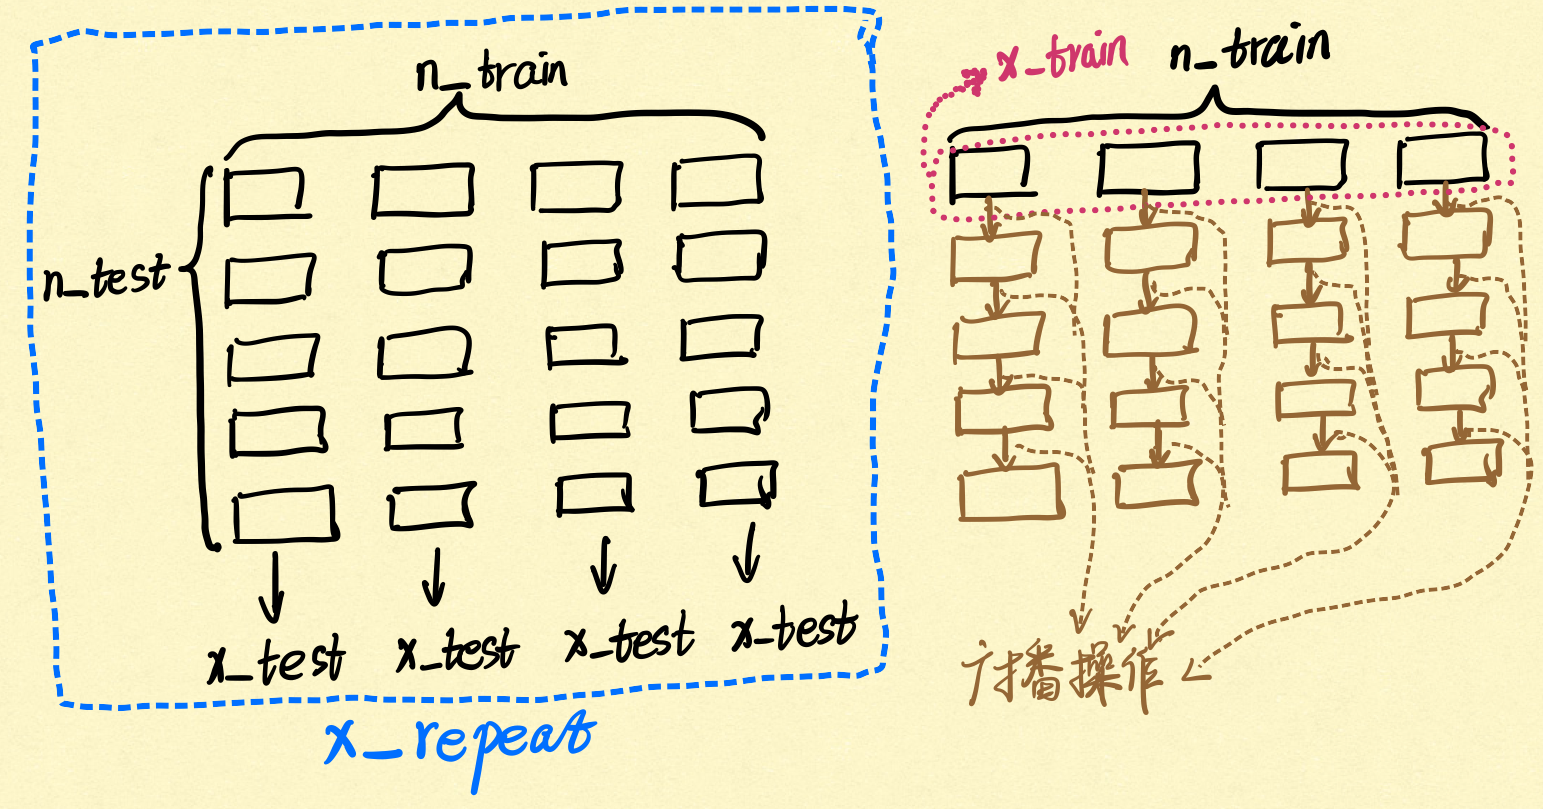 n_train
n_test
x_test x_test x_test x_test
x_repeat
x_train
n_train
广播操作